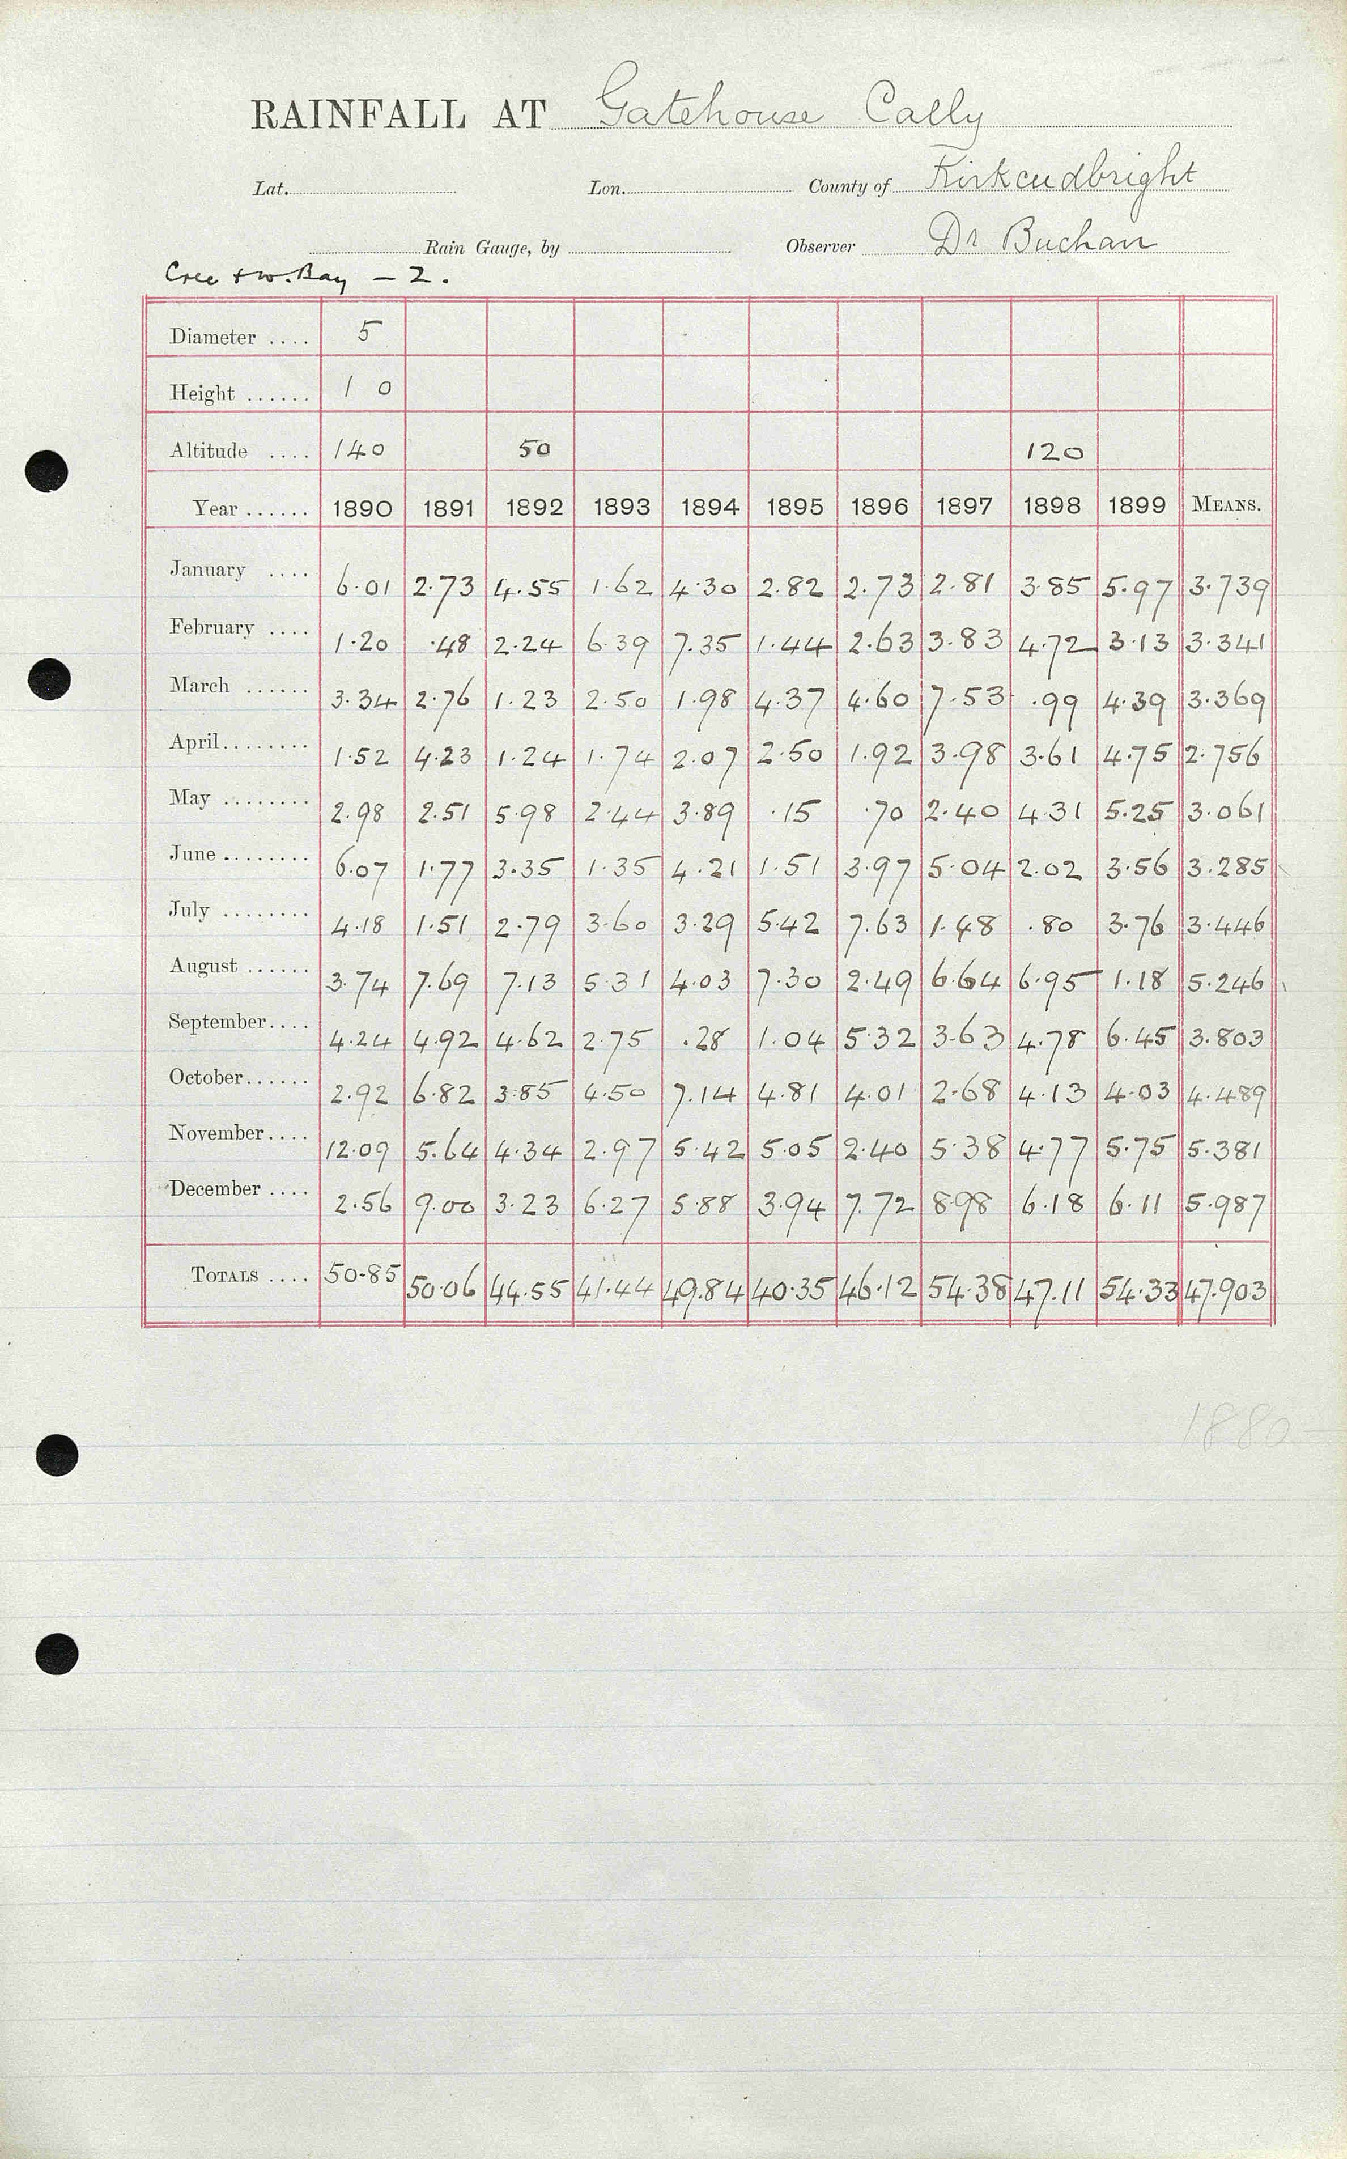 RAINFALL AT Gatehouse Cally
Lat. Lon. County of Kirkcudbright
Rain Gauge, by Observer Dr Buchan
Cree & W. Bay - 2.
Diameter .... 5
Height ...... 1 0
Altitude .... 140 50 120
Year ...... 1890 1891 1892 1893 1894 1895 1896 1897 1898 1899 MEANS.
January .... 6.01 2.73 4.55 1.62 4.30 2.82 2.73 2.81 3.85 5.97 3.739
February .... 1.20 .48 2.24 6.39 7.35 1.44 2.63 3.83 4.72 3.13 3.341
March ...... 3.34 2.76 1.23 2.50 1.98 4.37 4.60 7.53 .99 4.39 3.369
April........ 1.52 4.23 1.24 1.74 2.07 2.50 1.92 3.98 3.61 4.75 2.756
May ........ 2.98 2.51 5.98 2.44 3.89 .15 .70 2.40 4.31 5.25 3.061
June ........ 6.07 1.77 3.35 1.35 4.21 1.51 3.97 5.04 2.02 3.56 3.285
July ........ 4.18 1.51 2.79 3.60 3.29 5.42 7.63 1.48 .80 3.76 3.446
August ...... 3.74 7.69 7.13 5.31 4.03 7.30 2.49 6.64 6.95 1.18 5.246
September.... 4.24 4.92 4.62 2.75 .28 1.04 5.32 3.63 4.78 6.45 3.803
October...... 2.92 6.82 3.85 4.50 7.14 4.81 4.01 2.68 4.13 4.03 4.489
November.... 12.09 5.64 4.34 2.97 5.42 5.05 2.40 5.38 4.77 5.75 5.381
December .... 2.56 9.00 3.23 6.27 5.88 3.94 7.72 8.98 6.18 6.11 5.987
TOTALS .... 50.85 50.06 44.55 41.44 49.84 40.35 46.12 54.38 47.11 54.33 47.903
1880-